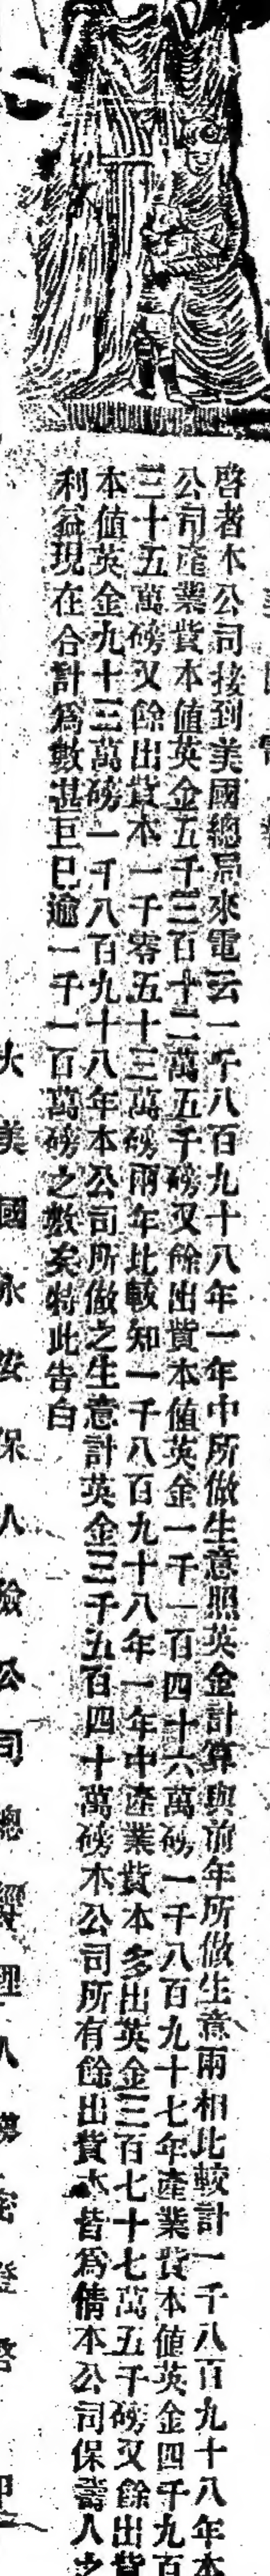 啓者本公司接到美國總局來電云一千八百九十八年一年中所做生意照英金計算與前年所做生意兩相比較計一千八百九十八年本
公司產業貲本值英金五千三百十二萬五千磅又餘出貲本值英金一千一百四十六萬磅一千八百九十七年產業貲本值英金四千九百
三十五萬磅又餘出貲本一千零五十三萬磅兩年比較知一千八百九十八年一年中產業貲本多出英金三百七十七萬五千磅又餘出貲
本值英金九十三萬磅一千八百九十八年本公司所做之生意計英金三千五百四十萬磅本公司所有餘出貲本皆爲倩本公司保壽人之
利益現在合計爲數甚巨已逾一千一百萬磅之數矣特此告白
大美國永安保人險公司總經理人